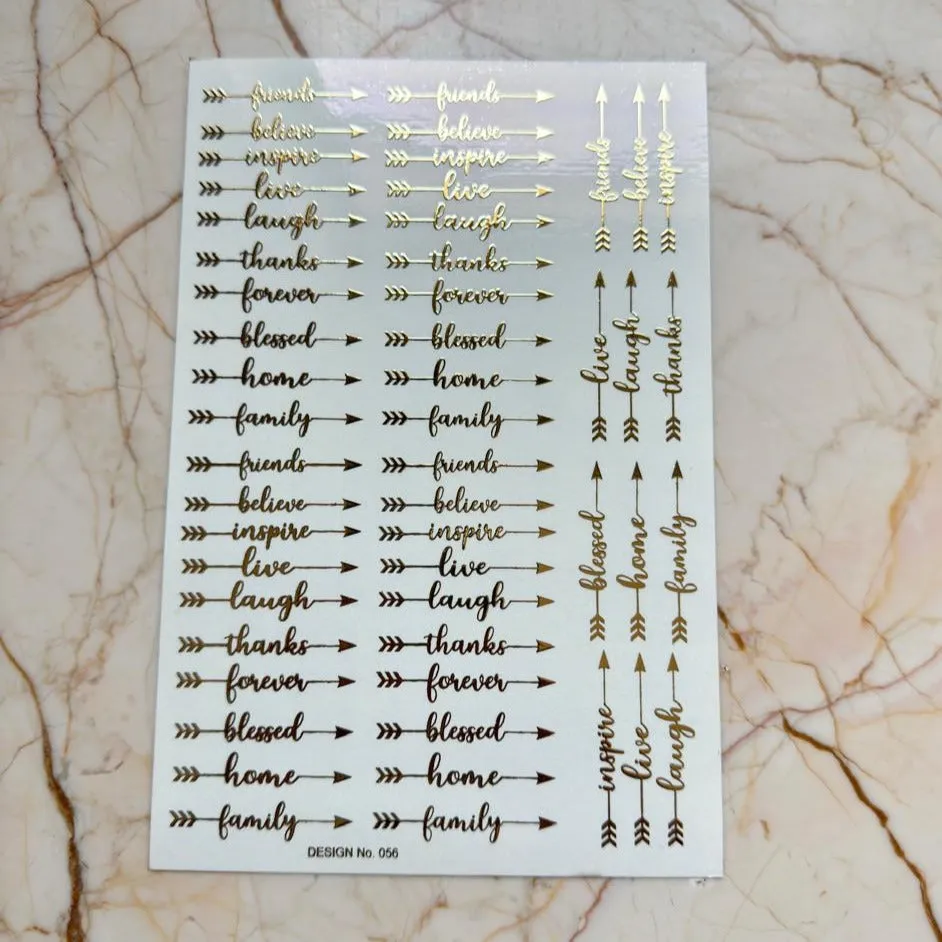 friends friends
believe believe
inspire inspire
live live
laugh laugh
thanks thanks
forever forever
blessed blessed
home home
family family
friends friends
believe believe
inspire inspire
live live
laugh laugh
thanks thanks
forever forever
blessed blessed
home home
family family
friends believe inspire
live laugh thanks
blessed home family
inspire live laugh
DESIGN No. 056